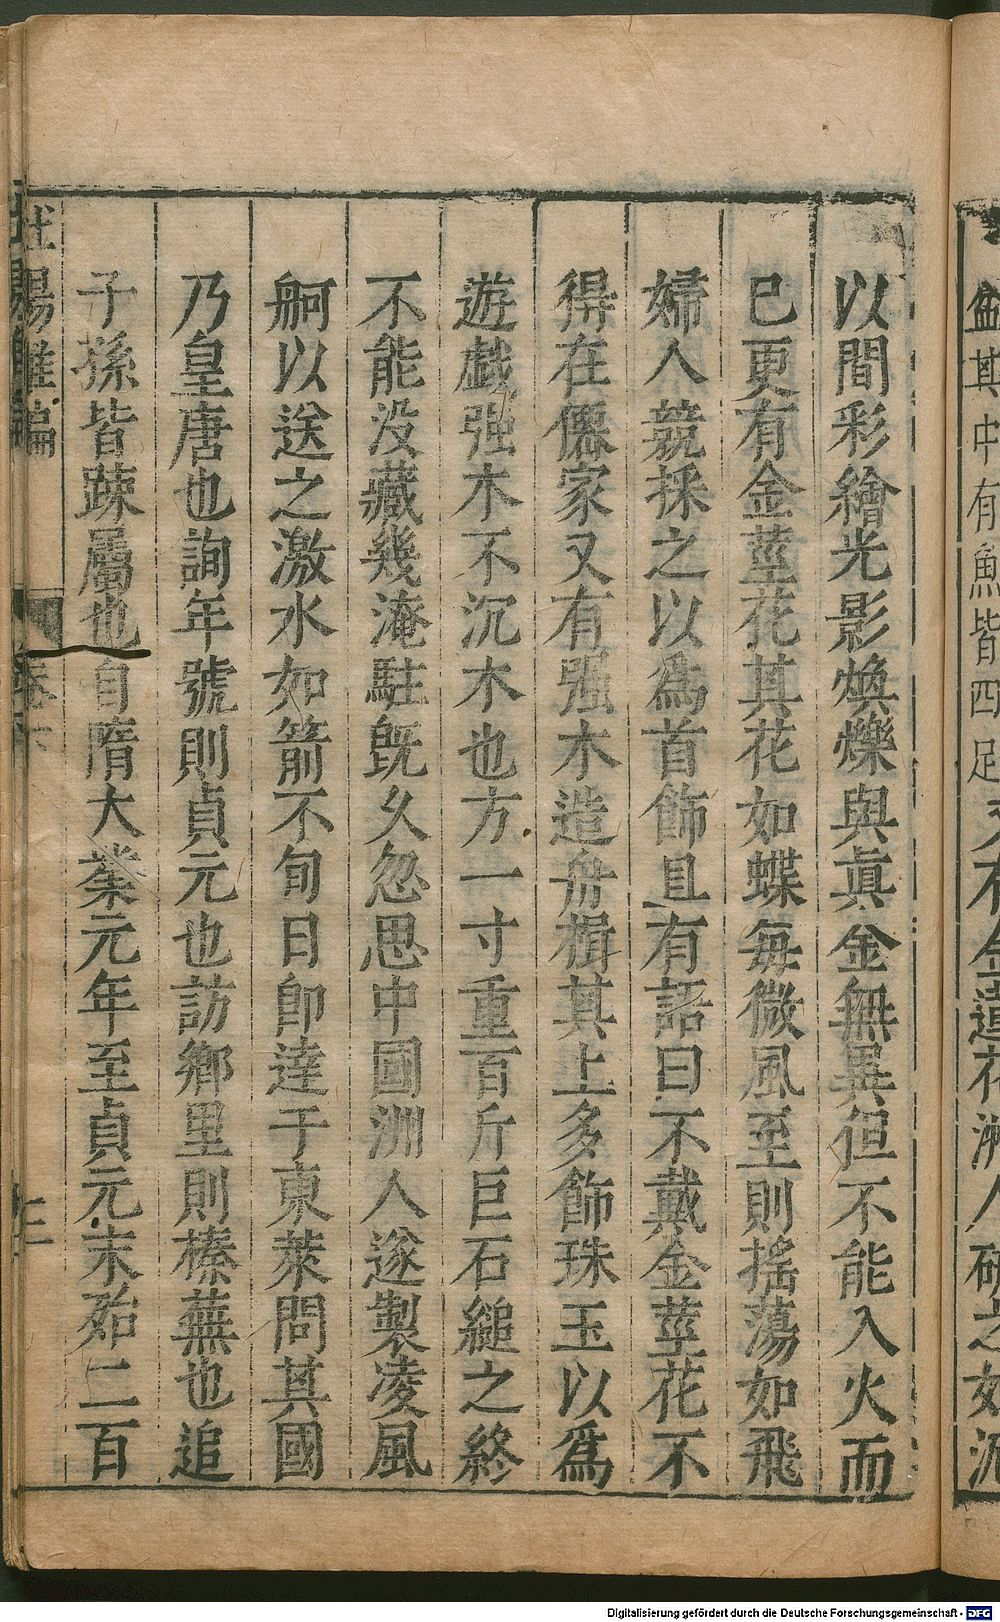 盤其中有魚皆四足又有金蓮花洲人研之如泥
以間彩繪光影煥爍與真金無異但不能入火而
已更有金莖花其花如蝶每微風至則搖蕩如飛
婦人競採之以爲首飾且有語曰不戴金莖花不
得在僊家又有强木造舟楫其上多飾珠玉以爲
遊戱强木不沉木也方一寸重百斤巨石縋之終
不能没藏幾淹駐旣久忽思中國洲人遂製凌風
舸以送之激水如箭不旬日卽達于東萊問其國
乃皇唐也詢年號則貞元也訪鄉里則榛蕪也追
子孫皆踈屬也自隋大業元年至貞元末殆二百
杜陽雜編
Digitalisierung gefördert durch die Deutsche Forschungsgemeinschaft - DFG